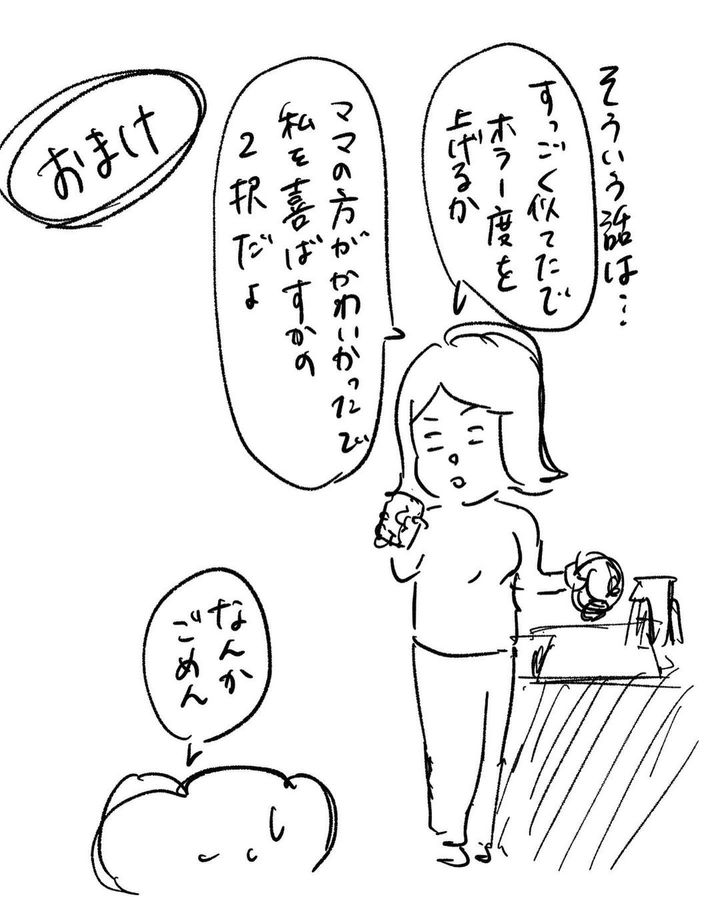 そういう話は…
すっごく似てたで
ホラー度を
上げるか
ママの方がかわいかったで
私を喜ばすかの
2択だよ
おまけ
なんか
ごめん